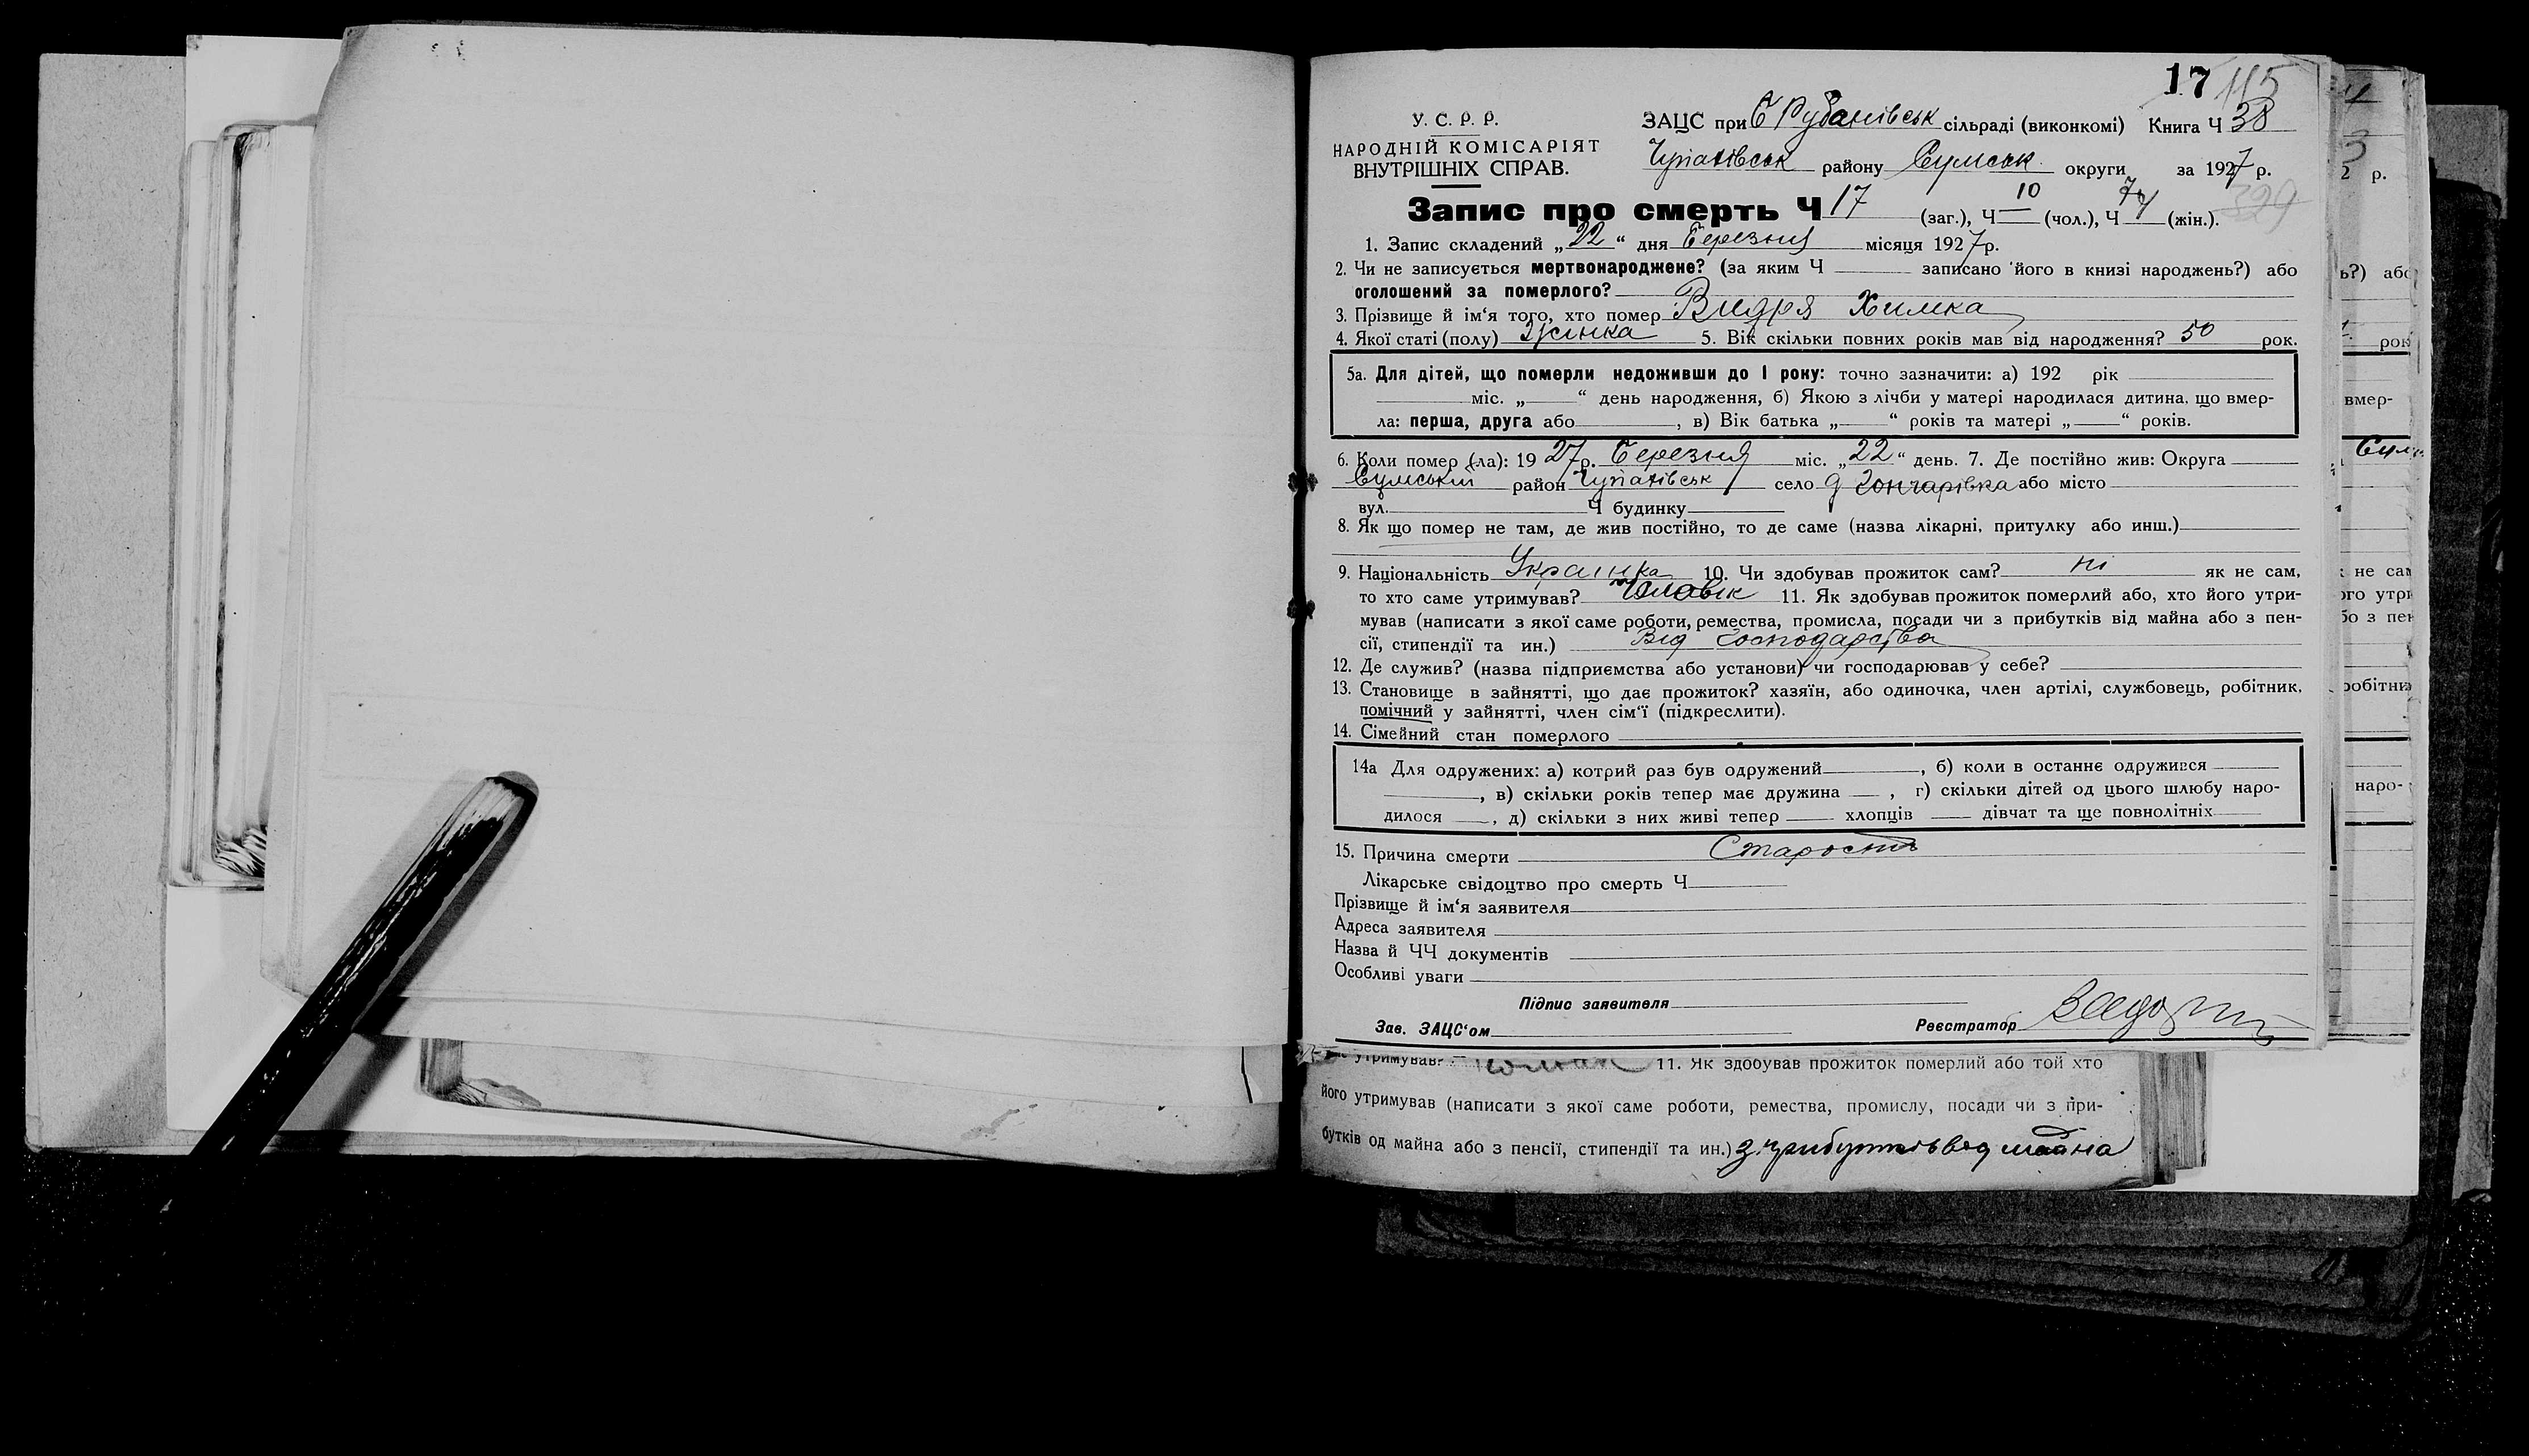 17 115
У. С. Р. Р.
НАРОДНІЙ КОМІСАРІЯТ
ВНУТРІШНІХ СПРАВ.
ЗАЦС при Рубанівськ сільраді (виконкомі) Книга Ч 38
Чупахівськ району Сумськ округи за 1927 р.
329
Запис про смерть Ч 17 (заг.), Ч 10 (чол.), Ч 7 (жін.).
1. Запис складений „22“ дня Березня місяця 1927 р.
2. Чи не записується мертвонароджене? (за яким Ч записано його в книзі народжень?) або
оголошений за померлого?
3. Прізвище й ім‘я того, хто помер Видря Химка
4. Якої статі (полу) Жінка 5. Вік скільки повних років мав від народження? 50 рок.
5а. Для дітей, що померли недоживши до 1 року: точно зазначити: а) 192 рік
міс. „ “ день народження, б) Якою з лічби у матері народилася дитина, що вмер-
ла: перша, друга або , в) Вік батька „ “ років та матері „ “ років.
6. Коли помер (ла): 1927 р. Березня міс. „22“ день. 7. Де постійно жив: Округа
Сумській район Чупахівськ село д Гончарівка або місто
вул. Ч будинку
8. Як що помер не там, де жив постійно, то де саме (назва лікарні, притулку або инш.)
9. Національність Українка 10. Чи здобував прожиток сам? ні як не сам,
то хто саме утримував? Чоловік 11. Як здобував прожиток померлий або, хто його утри-
мував (написати з якої саме роботи, ремества, промисла, посади чи з прибутків від майна або з пен-
сії, стипендії та ин.) Від господарства
12. Де служив? (назва підприємства або установи) чи господарював у себе?
13. Становище в зайнятті, що дає прожиток? хазяїн, або одиночка, член артілі, службовець, робітник,
помічний у зайнятті, член сім‘ї (підкреслити).
14. Сімейний стан померлого
14а Для одружених: а) котрий раз був одружений , б) коли в останнє одружився
, в) скільки років тепер має дружина , г) скільки дітей од цього шлюбу наро-
дилося , д) скільки з них живі тепер хлопців дівчат та ще повнолітніх
15. Причина смерти Старость
Лікарське свідоцтво про смерть Ч
Прізвище й ім‘я заявителя
Адреса заявителя
Назва й ЧЧ документів
Особливі уваги
Підпис заявителя
Зав. ЗАЦС‘ом Реєстратор
утримував? 11. Як здобував прожиток померлий або той хто
його утримував (написати з якої саме роботи, ремества, промислу, посади чи з при-
бутків од майна або з пенсії, стипендії та ин.) з прибутків від майна